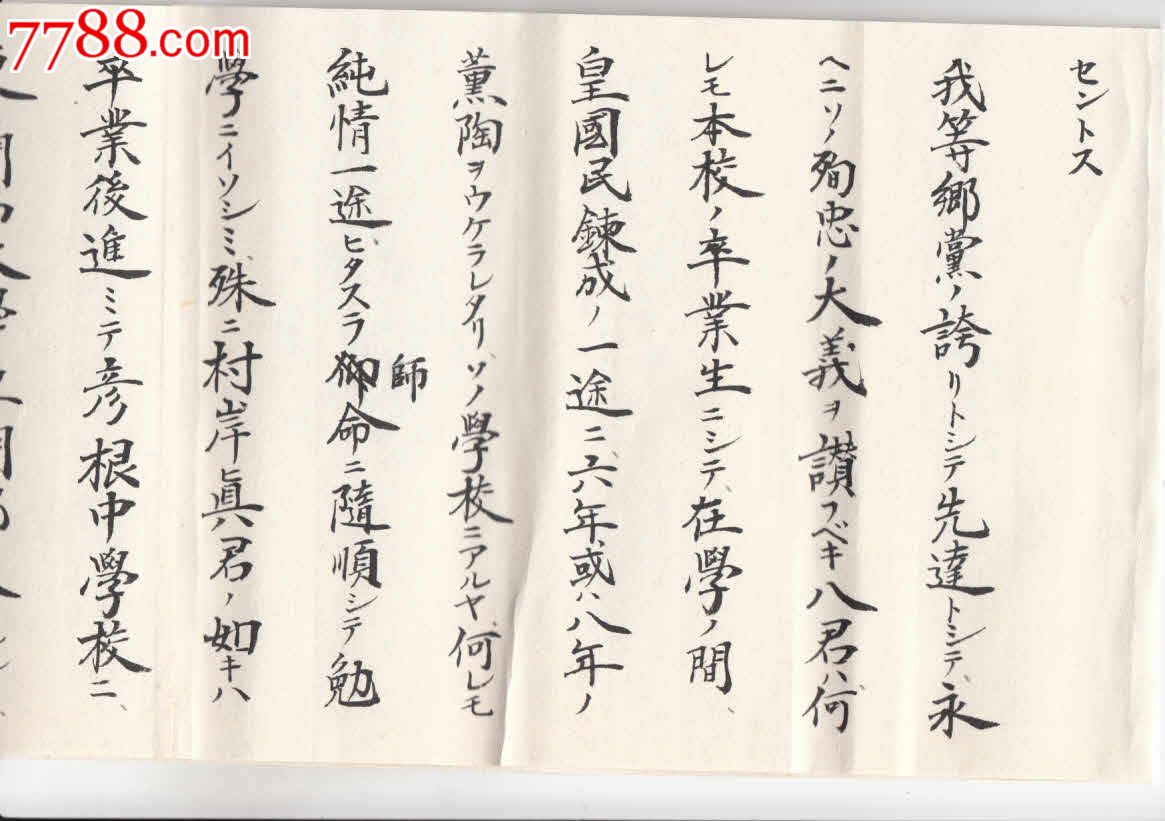 7788.com
セントス
我等郷黨ノ誇リトシテ先達トシテ、永
ヘニソノ殉忠ノ大義ヲ讃フベキ八君ハ、何
レモ本校ノ卒業生ニシテ、在學ノ間、
皇國民錬成ノ一途ニ、六年或ハ八年ノ
薫陶ヲウケラレタリ、ソノ學校ニアルヤ、何レモ
純情一途、ヒタスラ師命ニ隨順シテ勉
學ニイソシミ、殊ニ村岸眞君ノ如キハ
卒業後進ミテ彦根中學校ニ、